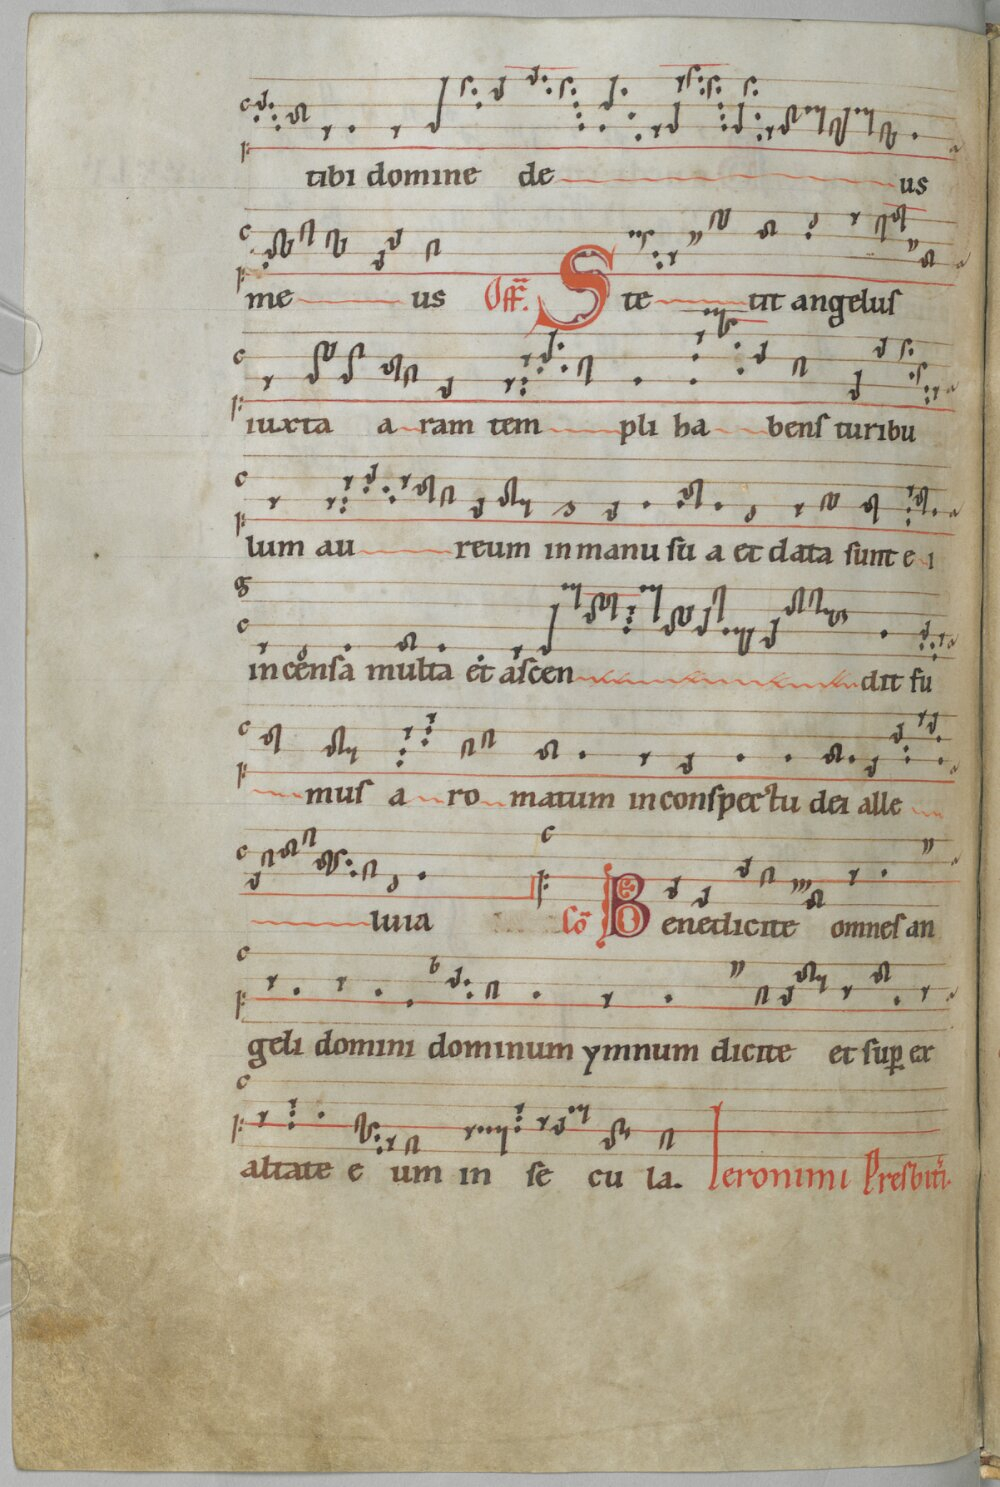 tibi domine de us
me us Off. Ste tit angelus
iuxta a ram tem pli ha bens turibu
lum au reum in manu su a et data sunt e i
incensa multa et ascen dit fu
mus a ro matum in conspectu dei alle
luia Co Benedicite omnes an
geli domini dominum ymnum dicite et sup ex
altate e um in se cu la. Ieronimi Presbiti.